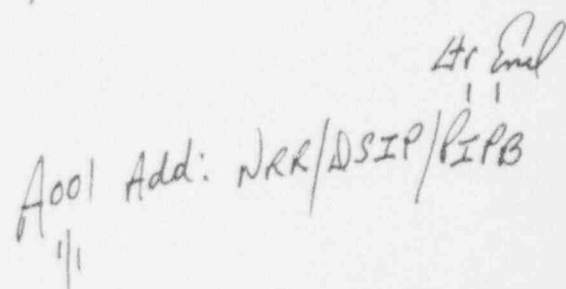 Ltr Encl
1 1
A001 Add: NRR/DSIP/PIPB
1/1